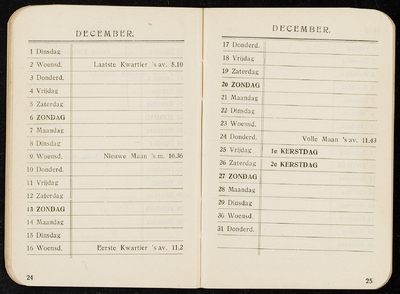 DECEMBER.
1 Dinsdag
2 Woensd. Laatste Kwartier 's av. 5.10
3 Donderd.
4 Vrijdag
5 Zaterdag
6 ZONDAG
7 Maandag
8 Dinsdag
9 Woensd. Nieuwe Maan 's m. 10.36
10 Donderd.
11 Vrijdag
12 Zaterdag
13 ZONDAG
14 Maandag
15 Dinsdag
16 Woensd. Eerste Kwartier 's av. 11.2
24
DECEMBER.
17 Donderd.
18 Vrijdag
19 Zaterdag
20 ZONDAG
21 Maandag
22 Dinsdag
23 Woensd.
24 Donderd. Volle Maan 's av. 11.43
25 Vrijdag 1e KERSTDAG
26 Zaterdag 2e KERSTDAG
27 ZONDAG
28 Maandag
29 Dinsdag
30 Woensd.
31 Donderd.
25